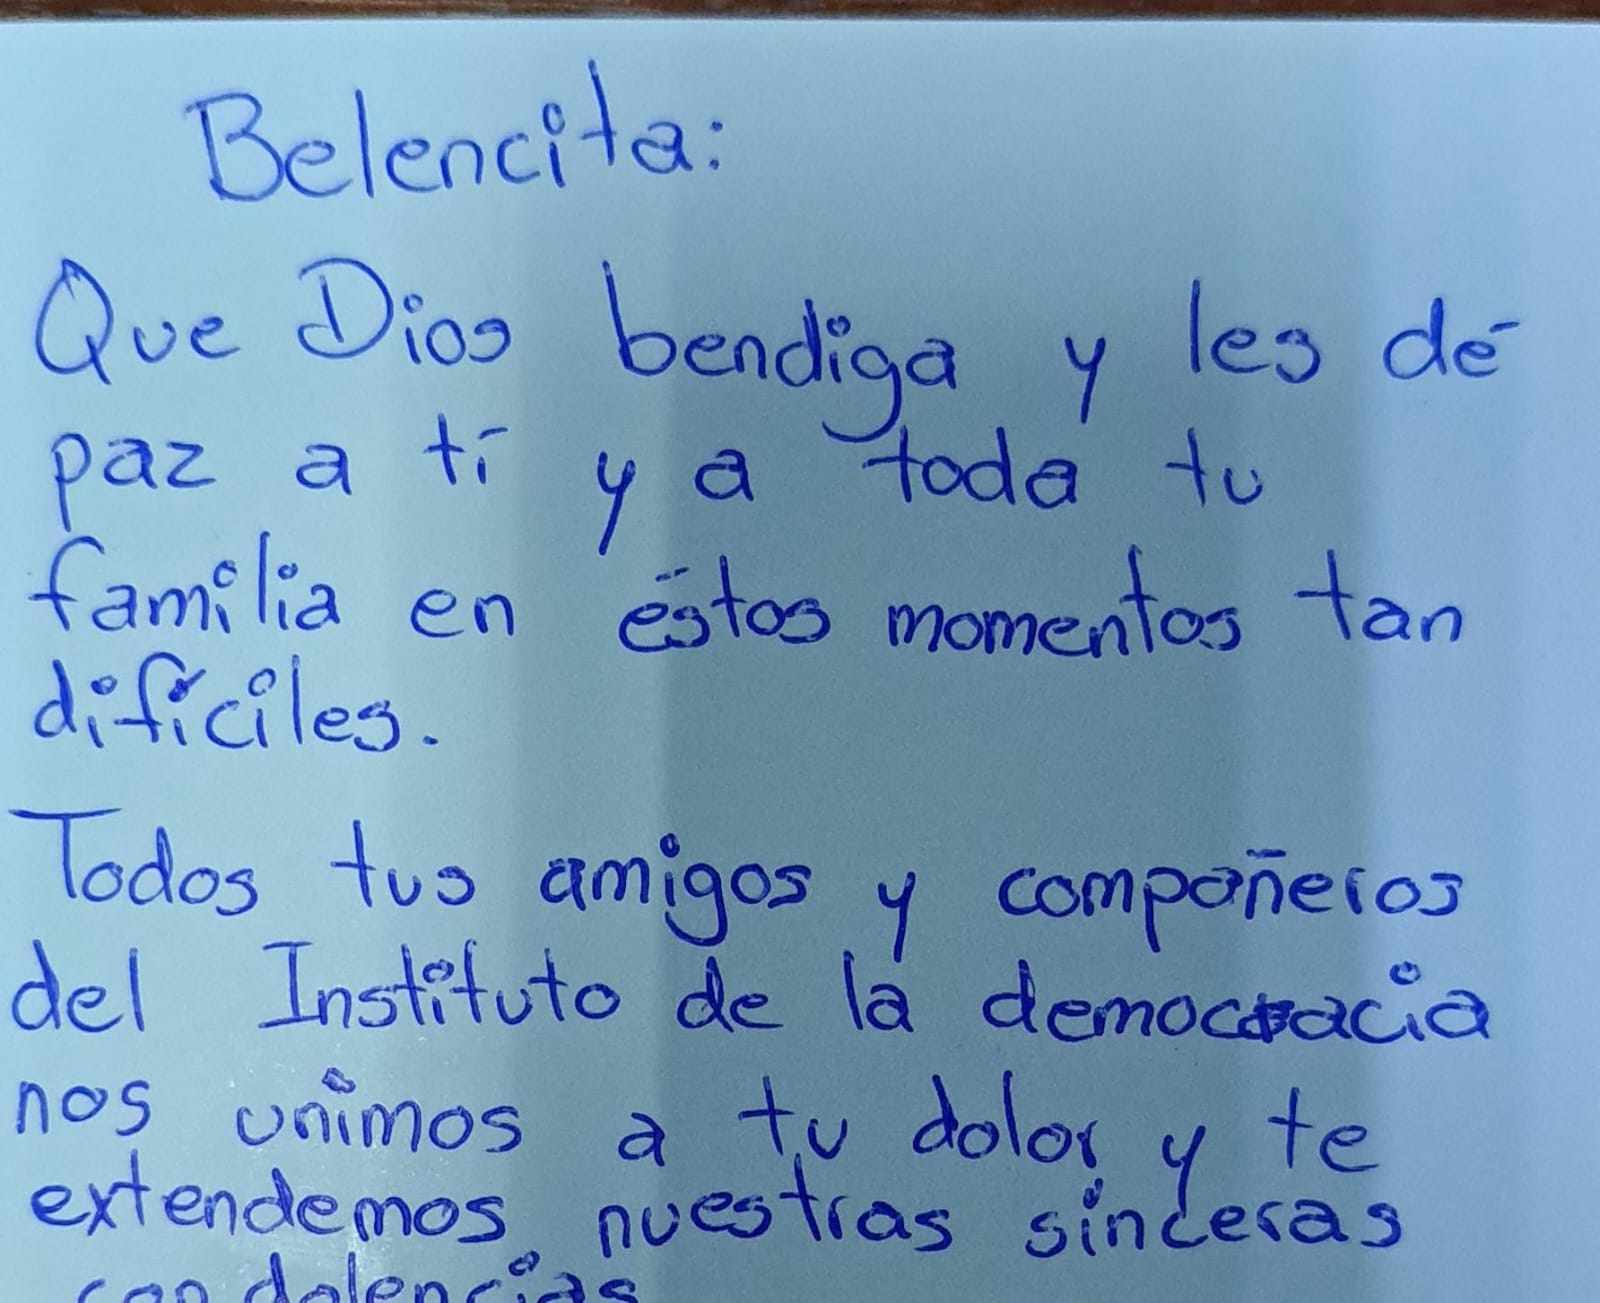 Belencita:
Que Dios bendiga y les dé
paz a tí y a toda tu
familia en éstos momentos tan
difíciles.
Todos tus amigos y compañeros
del Instituto de la democracia
nos unimos a tu dolor y te
extendemos nuestras sinceras
condolencias